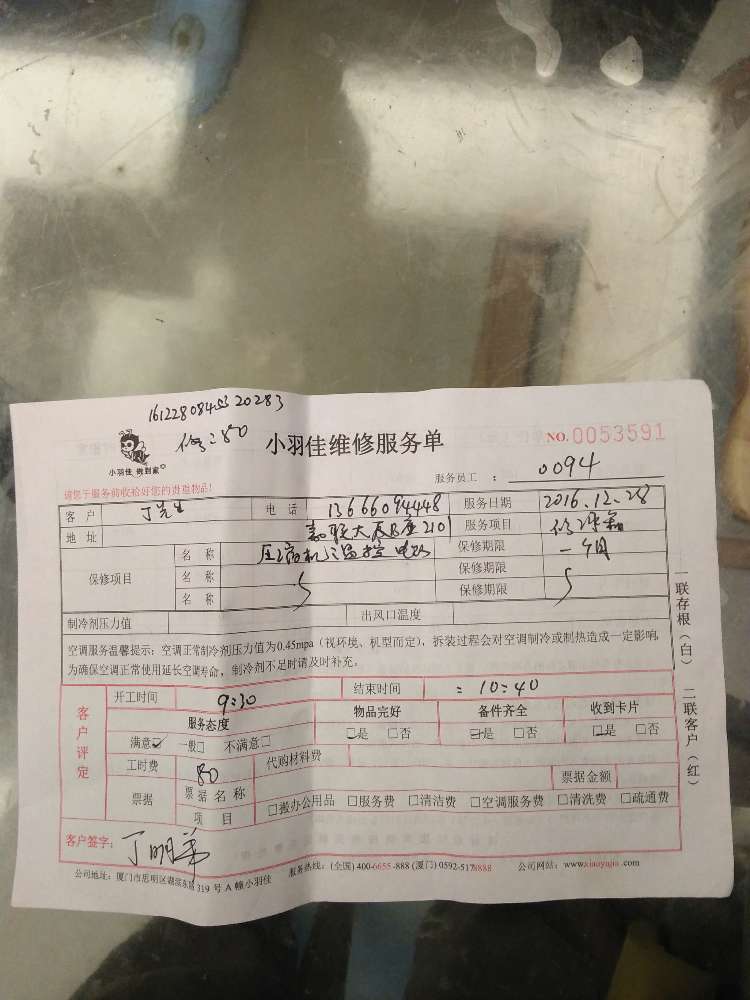 修:80
小羽佳 帮到家®
小羽佳维修服务单
NO.0053591
请您于服务前收拾好您的贵重物品!
服务员工 : 0094
客 户 丁先生 电 话 13666094448 服务日期 2016.12.28
地 址 嘉联大厦B座2101 服务项目
保修项目 名 称 保修期限 一个月
名 称 保修期限
名 称 保修期限
制冷剂压力值 出风口温度
空调服务温馨提示:空调正常制冷剂压力值为0.45mpa(视环境、机型而定),拆装过程会对空调制冷或制热造成一定影响,
为确保空调正常使用延长空调寿命,制冷剂不足时请及时补充。
客户评定
开工时间 9:30 结束时间 : 10:40
服务态度 物品完好 备件齐全 收到卡片
满意☑ 一般□ 不满意□ ☑是 □否 ☑是 □否 ☑是 □否
工时费 80 代购材料费
票据 票据名称 票据金额
项 目 □搬办公用品 □服务费 □清洁费 □空调服务费 □清洗费 □疏通费
客户签字: 丁明
公司地址:厦门市思明区湖滨东路319号A幢小羽佳 服务热线:(全国)400-6655-888 (厦门)0592-5178888 公司网站:www.xiaoyujia.com
一联存根(白) 二联客户(红)